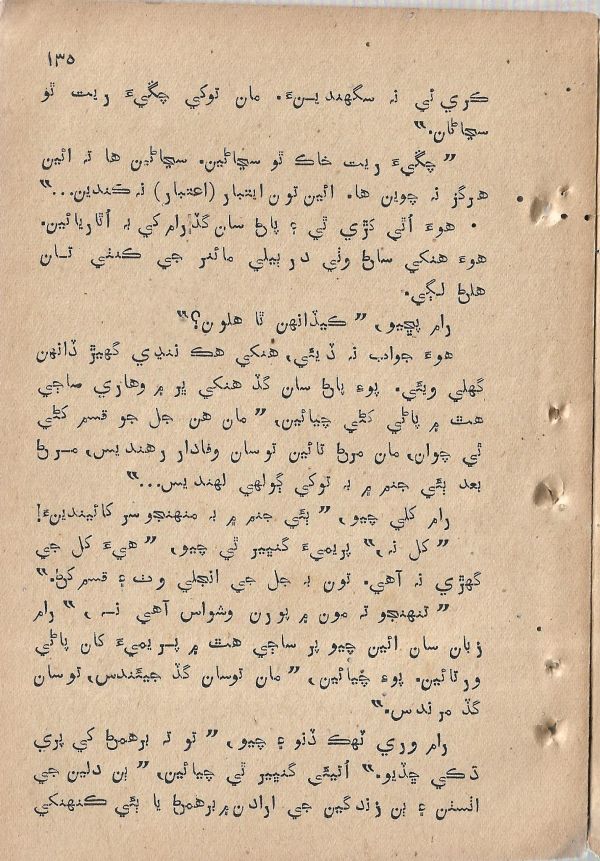 ١٣٥
ڪري ئي نہ سگهنديـنءَ. مان توکي چڱيءَ ريت ٿو
سڃاڻان.“
”چڱيءَ ريت خاڪ ٿو سڃاڻين. سڃاڻين ها تہ ائين
هرگز نہ چوين ها. ائين تون ايتبار (اعتبار) نہ ڪندين...“
هوءَ اُٿي کڙي ٿي ۽ پاڻ سان گڏ رام کي بہ اُٿاريائين.
هوءَ هنکي ساڻ وٺي درٻيلي مائنر جي ڪنٺي تـان
هلڻ لڳي.
رام پڇيو، ”ڪيڏانهن ٿا هلون؟“
هوءَ جواب نہ ڏيئي، هنکي هڪ ننڍي گهيڙ ڏانهن
گهلي ويئي. پوءِ پاڻ سان گڏ هنکي ڀر ۾ وهاري ساڄي
هٿ ۾ پاڻي کڻي چيائين، ”مان هن جل جو قسم کڻي
ٿي چوان، مان مرڻ تائين توسان وفادار رهنديس، مـرڻ
بعد ٻئي جنم ۾ بہ توکي ڳولهي لهنديس...“
رام کلي چيو، ”ٻئي جنم ۾ بہ منهنجو سر کائيندينءَ!
”کل نہ،“ پريميءَ گنڀير ٿي چيو، ”هيءَ کل جي
گهڙي نہ آهي. تون بہ جل جي انجلي وٺ ۽ قسم کڻ.“
”تنهنجو تہ مون ۾ پورن وشواس آهي نـہ،“ رام
زبان سان ائين چيو پر ساڄي هٿ ۾ پـريميءَ کان پاڻي
ورتائين. پوءِ چيائين، ”مان توسان گڏ جيئندس، توسان
گڏ مرندس.“
رام وري ٽهڪ ڏنو ۽ چيو، ”تو تہ برهمڻ کي پري
ڌڪي ڇڏيو.“ اُتيئي گنڀير ٿي چيائين، ”ٻن دلين جي
ائسن ۽ ٻن زندگين جي ارادن ۾ برهمڻ يا ٻئي ڪنهنکي